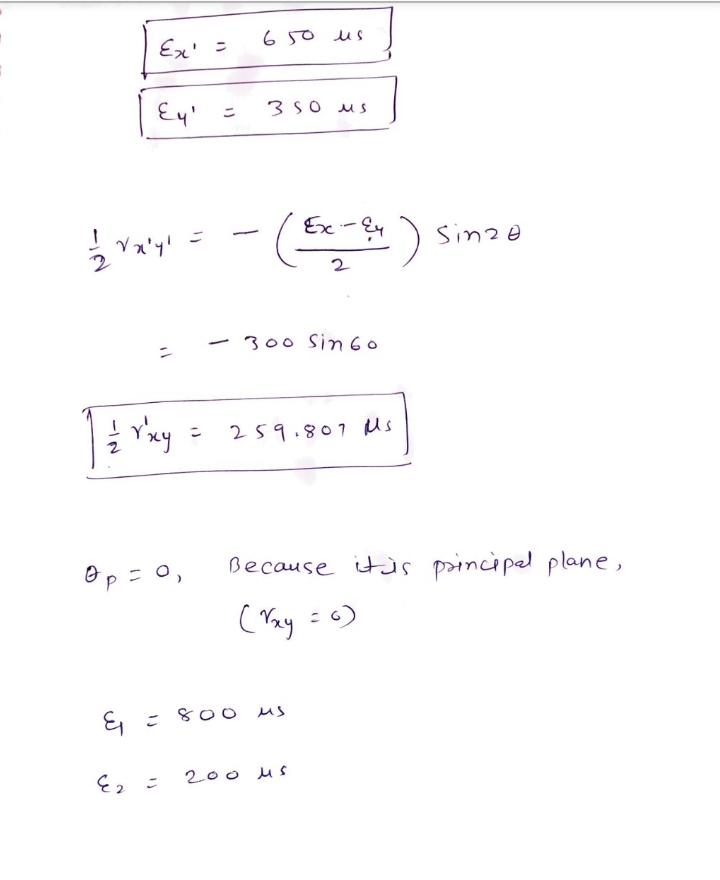 εx' = 650 μs
εy' = 350 μs
1/2 γx'y' = - ( (εx - εy) / 2 ) sin2θ
= - 300 Sin60
1/2 γ'xy = 259.807 μs
θp = 0, Because it is principal plane,
(γxy = 0)
ε1 = 800 μs
ε2 = 200 μs